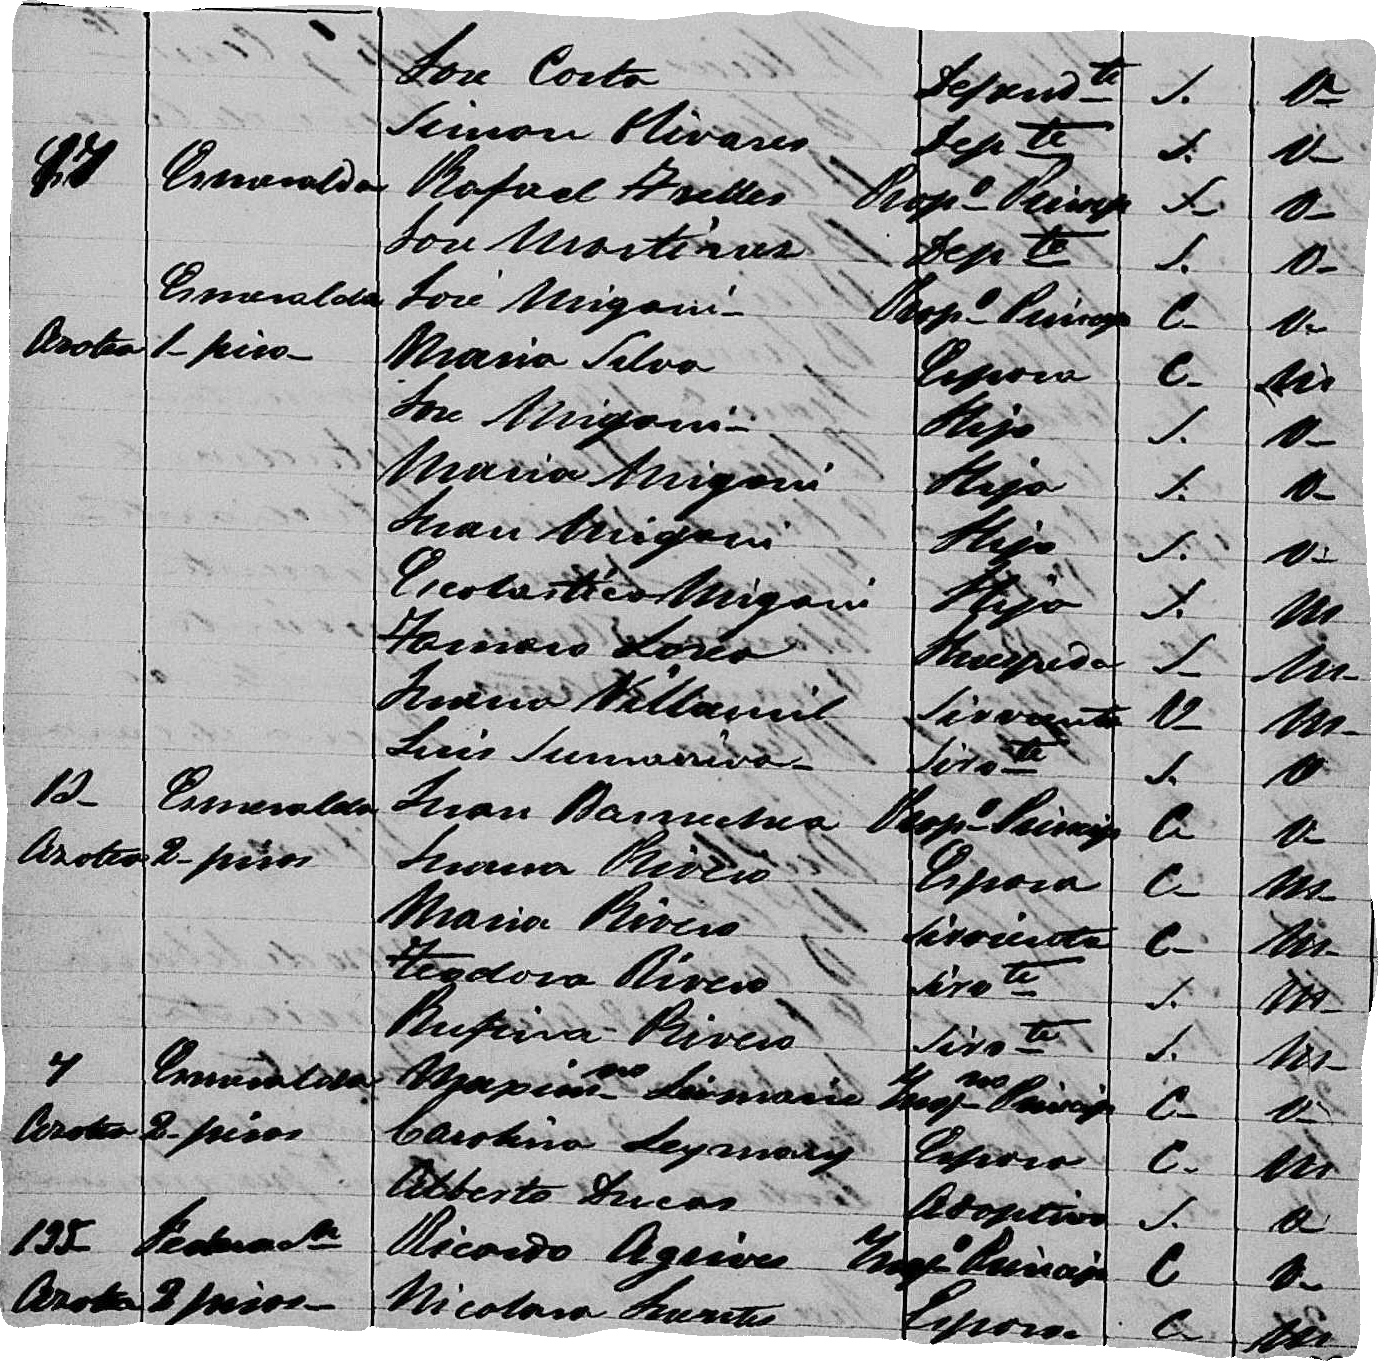 Jose Costa Depend te S. V-
Simon Olivares Dep te S. V-
Esmeralda Rafael Trelles Prop o Princip S- V-
Jose Martinez Dep te S. V-
Esmeralda José Migoni- Prop o Princip C- V-
Azotea 1- piso- Maria Silva Esposa C- M
Jose Migoni- Hijo S. V-
Maria Migoni Hija S. V-
Juan Migoni Hijo S. V-
Escolastica Migoni Hija S. M
Tomasa Huespeda S- M-
Juana Villamil Sirvienta V- M-
Luis Sumariva- Sirv te S. V
12- Esmeralda Juan Barnechea Prop o Princip C- V-
Azotea 2- pisos Juana Rivero Esposa C- M-
Maria Rivero Sirvienta C- M-
Teodora Rivero Sirv te S. M-
Rufina Rivero Sirv te S. M-
7 Esmeralda Maxim no Leimarie Ynq no Princip C- V-
Azotea 2- pisos Carolina Leymary Esposa C. M
Alberto Ducas Adoptivo S. V
195 Ricardo Aguirre Ynq o Princip C V-
Azotea 2 pisos- Nicolasa Fuentes Esposa C- M